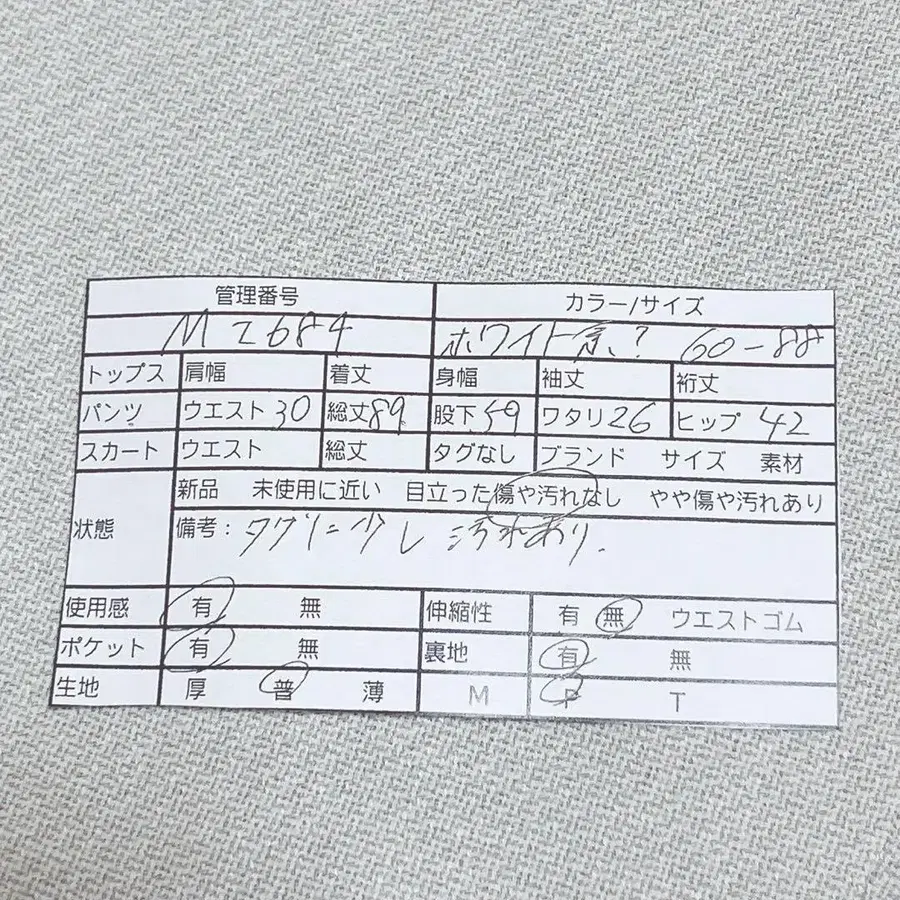 管理番号 カラー/サイズ
M2684 ホワイト系? 60-88
トップス 肩幅 着丈 身幅 袖丈 裄丈
パンツ ウエスト 30 総丈 89 股下 59 ワタリ 26 ヒップ 42
スカート ウエスト 総丈 タグなし ブランド サイズ 素材
新品 未使用に近い 目立った傷や汚れなし やや傷や汚れあり
状態 備考: タグに少し汚れあり.
使用感 有 無 伸縮性 有 無 ウエストゴム
ポケット 有 無 裏地 有 無
生地 厚 普 薄 M P T